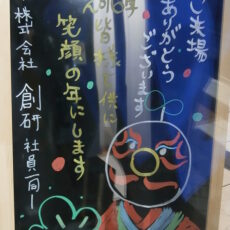 ご来場
ありがとう
ございます
皆様と供に
笑顔の年にします
株式会社 創研 社員一同